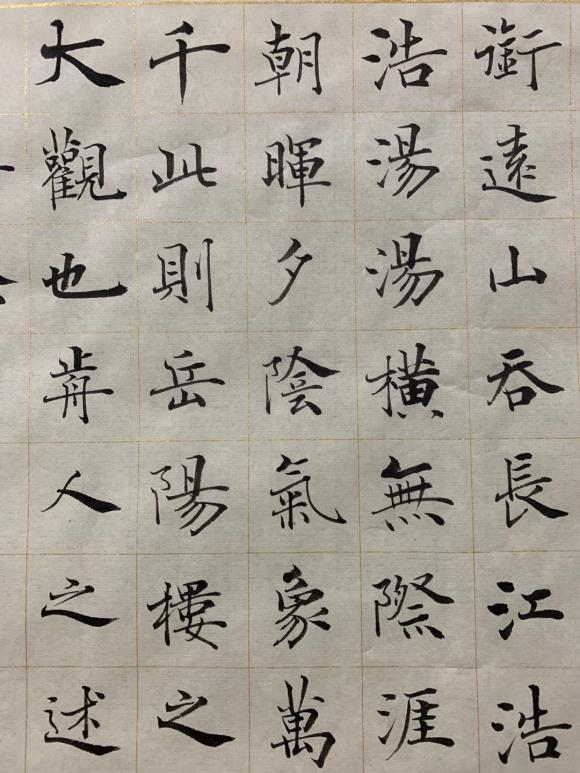 銜遠山吞長江浩
浩湯湯橫無際涯
朝暉夕陰氣象萬
千此則岳陽樓之
大觀也歬人之述